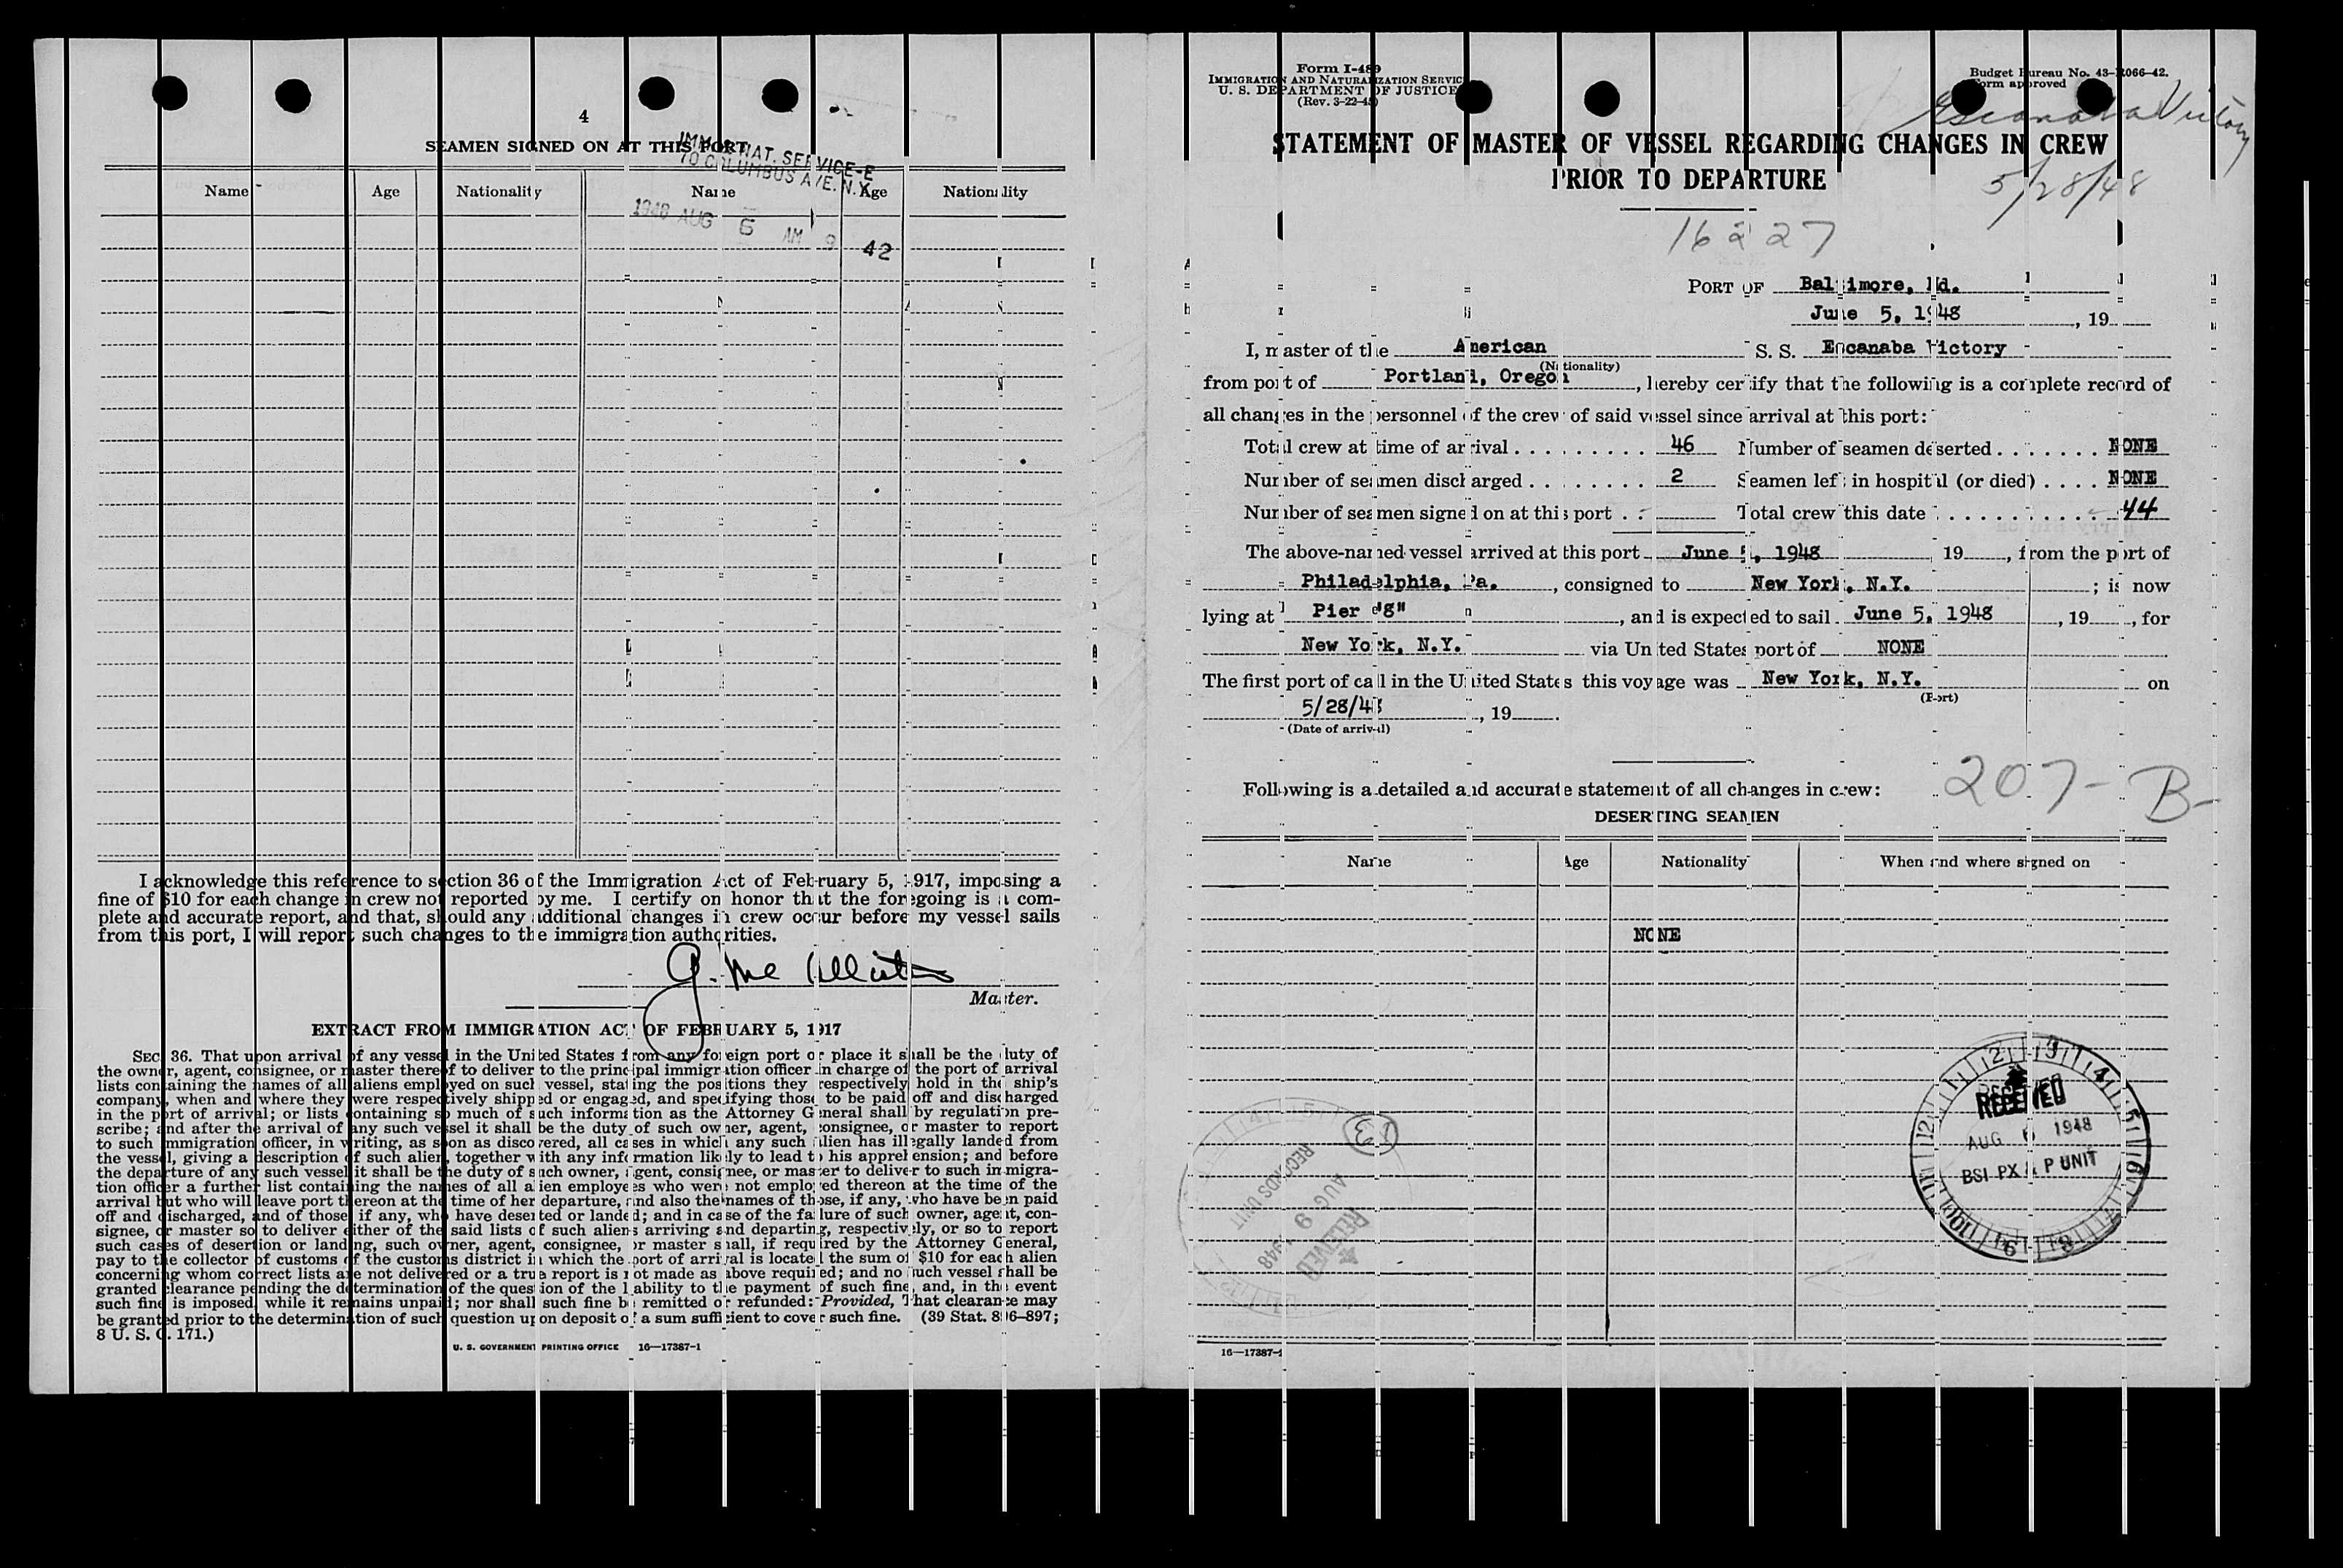 4
SEAMEN SIGNED ON AT THIS PORT
IMMIGRAT. SERVICE-E
70 COLUMBUS AVE. N.Y.
Name Age Nationality Name Age Nationality
1948 AUG 6 AM 9 42
I acknowledge this reference to section 36 of the Immigration Act of February 5, 1917, imposing a
fine of $10 for each change in crew not reported by me. I certify on honor that the foregoing is a com-
plete and accurate report, and that, should any additional changes in crew occur before my vessel sails
from this port, I will report such changes to the immigration authorities.
Master.
EXTRACT FROM IMMIGRATION ACT OF FEBRUARY 5, 1917
SEC. 36. That upon arrival of any vessel in the United States from any foreign port or place it shall be the duty of
the owner, agent, consignee, or master thereof to deliver to the principal immigration officer in charge of the port of arrival
lists containing the names of all aliens employed on such vessel, stating the positions they respectively hold in the ship's
company, when and where they were respectively shipped or engaged, and specifying those to be paid off and discharged
in the port of arrival; or lists containing so much of such information as the Attorney General shall by regulation pre-
scribe; and after the arrival of any such vessel it shall be the duty of such owner, agent, consignee, or master to report
to such immigration officer, in writing, as soon as discovered, all cases in which any such alien has illegally landed from
the vessel, giving a description of such alien, together with any information likely to lead to his apprehension; and before
the departure of any such vessel it shall be the duty of such owner, agent, consignee, or master to deliver to such immigra-
tion officer a further list containing the names of all alien employees who were not employed thereon at the time of the
arrival but who will leave port thereon at the time of her departure, and also the names of those, if any, who have been paid
off and discharged, and of those, if any, who have deserted or landed; and in case of the failure of such owner, agent, con-
signee, or master so to deliver either of the said lists of such aliens arriving and departing, respectively, or so to report
such cases of desertion or landing, such owner, agent, consignee, or master shall, if required by the Attorney General,
pay to the collector of customs of the customs district in which the port of arrival is located the sum of $10 for each alien
concerning whom correct lists are not delivered or a true report is not made as above required; and no such vessel shall be
granted clearance pending the determination of the question of the liability to the payment of such fine, and, in the event
such fine is imposed, while it remains unpaid; nor shall such fine be remitted or refunded: Provided, That clearance may
be granted prior to the determination of such question upon deposit of a sum sufficient to cover such fine. (39 Stat. 896–897;
8 U. S. C. 171.)
U. S. GOVERNMENT PRINTING OFFICE 16—17387-1
Form I-489
IMMIGRATION AND NATURALIZATION SERVICE
U. S. DEPARTMENT OF JUSTICE
(Rev. 3-22-45)
Budget Bureau No. 43-R066-42.
Form approved
Escanaba Victory
STATEMENT OF MASTER OF VESSEL REGARDING CHANGES IN CREW
PRIOR TO DEPARTURE
5/28/48
16227
PORT OF Baltimore, Md.
June 5, 1948, 19
I, master of the American S. S. Escanaba Victory
(Nationality)
from port of Portland, Oregon, hereby certify that the following is a complete record of
all changes in the personnel of the crew of said vessel since arrival at this port:
Total crew at time of arrival . . . . . . . . . 46 Number of seamen deserted . . . . . . . NONE
Number of seamen discharged . . . . . . . . 2 Seamen left in hospital (or died) . . . . NONE
Number of seamen signed on at this port . . - Total crew this date . . . . . . . . . . . 44
The above-named vessel arrived at this port June 5, 1948 19, from the port of
Philadelphia, Pa., consigned to New York, N.Y.; is now
lying at Pier "8", and is expected to sail June 5, 1948, 19, for
New York, N.Y. via United States port of NONE
The first port of call in the United States this voyage was New York, N.Y. on
(Port)
5/28/48, 19.
(Date of arrival)
207-B-
Following is a detailed and accurate statement of all changes in crew:
DESERTING SEAMEN
Name Age Nationality When and where signed on
NONE
RECEIVED
AUG 6 1948
BSI PX & P UNIT
RECORDS UNIT
AUG 9 1948
RECEIVED
16—17387-1